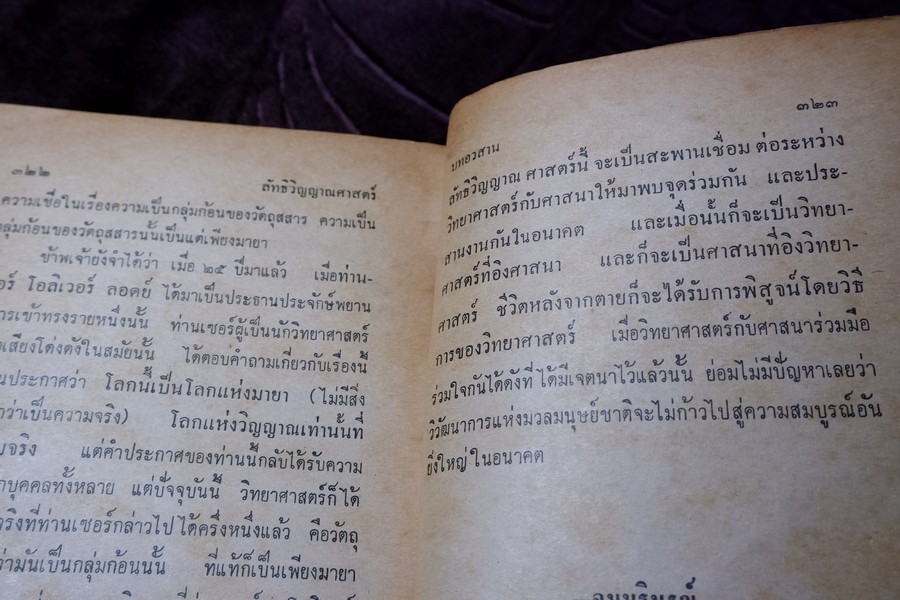 ๓๒๒
ลัทธิวิญญาณศาสตร์
ความเชื่อในเรื่องความเป็นกลุ่มก้อนของวัตถุสสาร ความเป็น
กลุ่มก้อนของวัตถุสสารนั้นเป็นแต่เพียงมายา
ข้าพเจ้ายังจำได้ว่า เมื่อ ๒๕ ปีมาแล้ว เมื่อท่าน-
อร์ โอลิเวอร์ ลอดย์ ได้มาเป็นประธานประจักษ์พยาน
การเข้าทรงรายหนึ่งนั้น ท่านเซอร์ผู้เป็นนักวิทยาศาสตร์
เสียงโด่งดังในสมัยนั้น ได้ตอบคำถามเกี่ยวกับเรื่องนี้
นประกาศว่า โลกนี้เป็นโลกแห่งมายา (ไม่มีสิ่ง
ว่าเป็นความจริง) โลกแห่งวิญญาณเท่านั้นที่
จริง แต่คำประกาศของท่านนี้กลับได้รับความ
บุคคลทั้งหลาย แต่ปัจจุบันนี้ วิทยาศาสตร์ก็ได้
ริงที่ท่านเซอร์กล่าวไปได้ครึ่งหนึ่งแล้ว คือวัตถุ
ว่ามันเป็นกลุ่มก้อนนั้น ที่แท้ก็เป็นเพียงมายา
๓๒๓
บทอวสาน
ลัทธิวิญญาณ ศาสตร์นี้ จะเป็นสะพานเชื่อม ต่อระหว่าง
วิทยาศาสตร์กับศาสนาให้มาพบจุดร่วมกัน และประ-
สานงานกันในอนาคต และเมื่อนั้นก็จะเป็นวิทยา-
ศาสตร์ที่อิงศาสนา และก็จะเป็นศาสนาที่อิงวิทยา-
ศาสตร์ ชีวิตหลังจากตายก็จะได้รับการพิสูจน์โดยวิธี
การของวิทยาศาสตร์ เมื่อวิทยาศาสตร์กับศาสนาร่วมมือ
ร่วมใจกันได้ดังที่ ได้มีเจตนาไว้แล้วนั้น ย่อมไม่มีปัญหาเลยว่า
วิวัฒนาการแห่งมวลมนุษย์ชาติจะไม่ก้าวไปสู่ความสมบูรณ์อัน
ยิ่งใหญ่ ในอนาคต